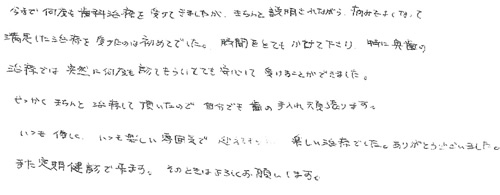 今まで何度も歯科治療を受けてきましたが、きちんと説明されながら、痛みもよくなって
満足した治療を受けたのは初めてでした。時間をとてもかけて下さり、特に奥歯の
治療では突然に何度も診てもらいとても安心して受けることができました。
せっかくきちんと治療して頂いたので自分でも歯の手入れ頑張ります。
いつも優しく、いつも楽しい雰囲気で 楽しい治療でした。ありがとうございました。
また定期健診で来ます。そのときはよろしくお願いします。